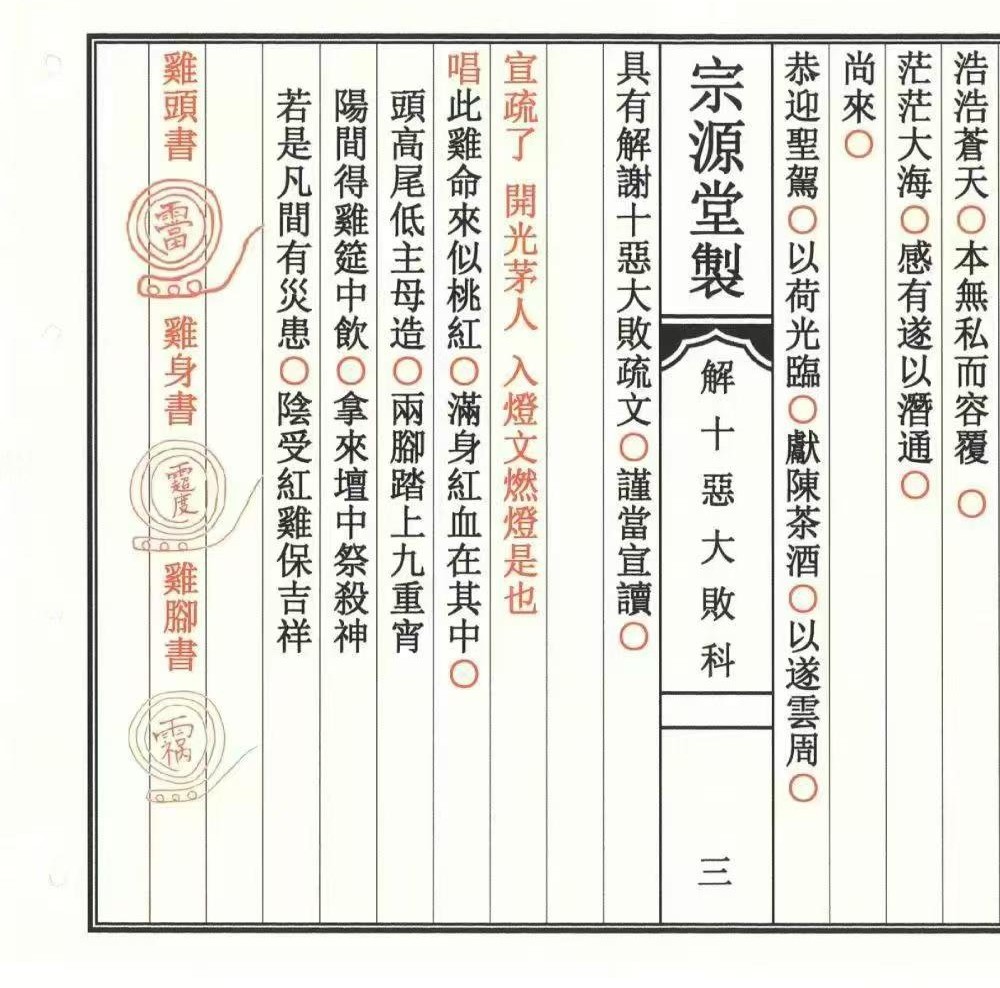 浩浩蒼天○本無私而容覆○
茫茫大海○感有遂以潛通○
尚來○
恭迎聖駕○以荷光臨○獻陳茶酒○以遂雲周○
宗源堂製
解十惡大敗科
三
具有解謝十惡大敗疏文○謹當宣讀○
宣疏了 開光茅人 入燈文燃燈是也
唱此雞命來似桃紅○滿身紅血在其中○
頭高尾低主母造○兩腳踏上九重宵
陽間得雞筵中飲○拿來壇中祭殺神
若是凡間有災患○陰受紅雞保吉祥
雞頭書
雞身書
雞腳書